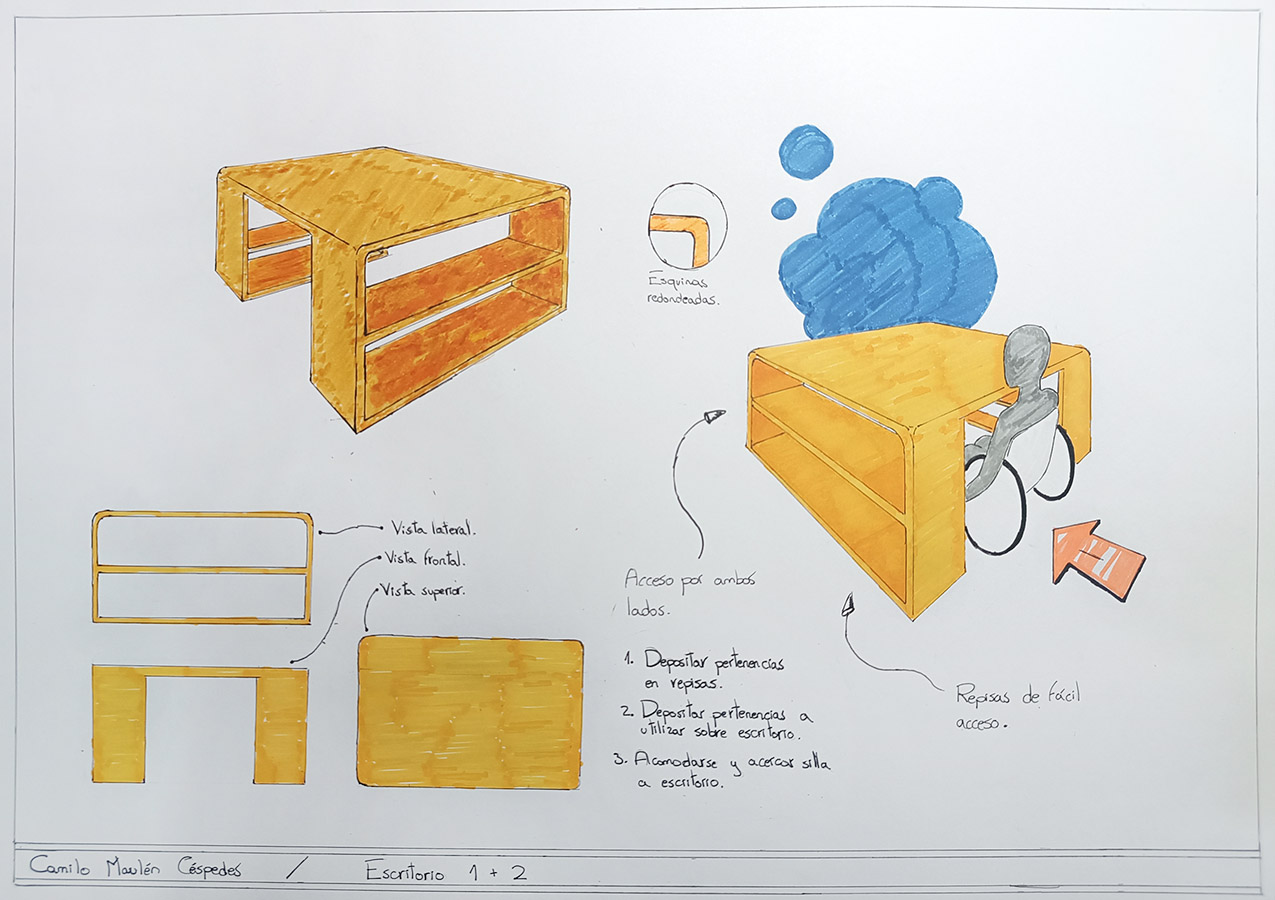 Esquinas
redondeadas.
Vista lateral.
Vista frontal.
Vista superior.
Acceso por ambos
lados.
1. Depositar pertenencias
en repisas.
2. Depositar pertenencias a
utilizar sobre escritorio.
3. Acomodarse y acercar silla
a escritorio.
Repisas de fácil
acceso.
Camilo Maulén Céspedes / Escritorio 1 + 2